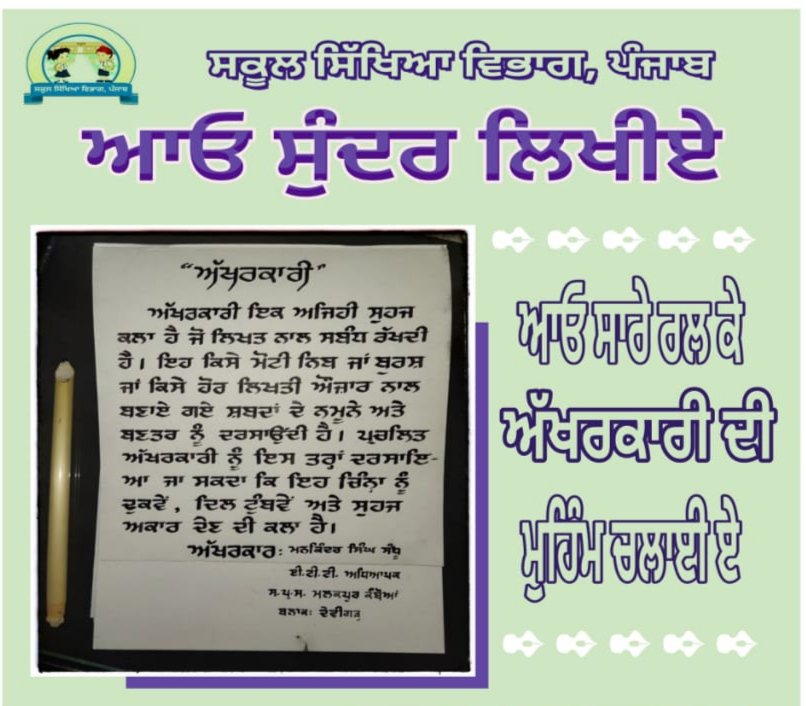 ਸਕੂਲ ਸਿੱਖਿਆ ਵਿਭਾਗ, ਪੰਜਾਬ
ਸਕੂਲ ਸਿੱਖਿਆ ਵਿਭਾਗ, ਪੰਜਾਬ
ਆਓ ਸੁੰਦਰ ਲਿਖੀਏ
"ਅੱਖਰਕਾਰੀ"
ਅੱਖਰਕਾਰੀ ਇਕ ਅਜਿਹੀ ਸੁਹਜ
ਕਲਾ ਹੈ ਜੋ ਲਿਖਤ ਨਾਲ ਸਬੰਧ ਰੱਖਦੀ
ਹੈ। ਇਹ ਕਿਸੇ ਮੋਟੀ ਨਿਬ ਜਾਂ ਬੁਰਸ਼
ਜਾਂ ਕਿਸੇ ਹੋਰ ਲਿਖਤੀ ਔਜ਼ਾਰ ਨਾਲ
ਬਣਾਏ ਗਏ ਸ਼ਬਦਾਂ ਦੇ ਨਮੂਨੇ ਅਤੇ
ਬਣਤਰ ਨੂੰ ਦਰਸਾਉਂਦੀ ਹੈ। ਪ੍ਰਚਲਿਤ
ਅੱਖਰਕਾਰੀ ਨੂੰ ਇਸ ਤਰ੍ਹਾਂ ਦਰਸਾਇ-
ਆ ਜਾ ਸਕਦਾ ਕਿ ਇਹ ਚਿੰਨ੍ਹਾ ਨੂੰ
ਢੁਕਵੇਂ, ਦਿਲ ਟੁੰਬਵੇਂ ਅਤੇ ਸੁਹਜ
ਅਕਾਰ ਦੇਣ ਦੀ ਕਲਾ ਹੈ।
ਅੱਖਰਕਾਰ: ਮਨਕਿੰਦਰ ਸਿੰਘ ਸੰਧੂ
ਈ.ਟੀ.ਟੀ. ਅਧਿਆਪਕ
ਸ.ਪ੍ਰ.ਸ. ਮਲਕਪੁਰ ਕੰਬੋਆਂ
ਬਲਾਕ: ਦੇਵੀਗੜ੍ਹ
ਆਓ ਸਾਰੇ ਰਲ ਕੇ
ਅੱਖਰਕਾਰੀ ਦੀ
ਮੁਹਿੰਮ ਚਲਾਈ ਏ